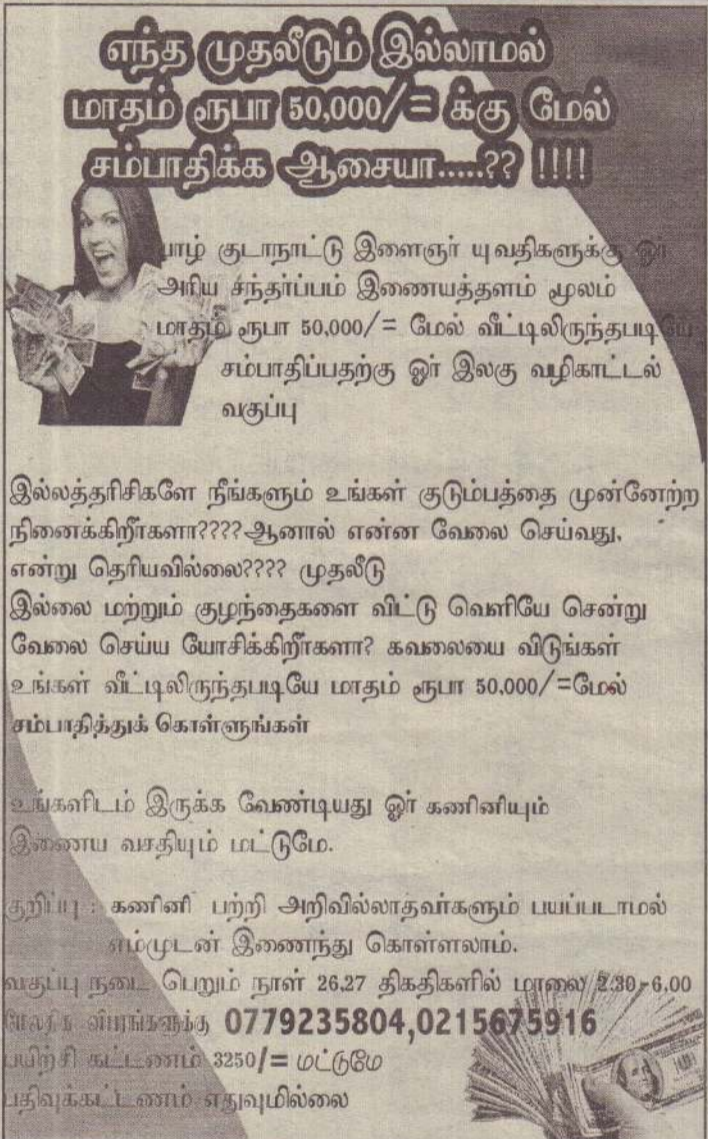 எந்த முதலீடும் இல்லாமல்
மாதம் ரூபா 50,000/= க்கு மேல்
சம்பாதிக்க ஆசையா.....?? !!!!
யாழ் குடாநாட்டு இளைஞர் யுவதிகளுக்கு ஓர்
அரிய சந்தர்ப்பம் இணையத்தளம் மூலம்
மாதம் ரூபா 50,000/= மேல் வீட்டிலிருந்தபடியே
சம்பாதிப்பதற்கு ஓர் இலகு வழிகாட்டல்
வகுப்பு
இல்லத்தரிசிகளே நீங்களும் உங்கள் குடும்பத்தை முன்னேற்ற
நினைக்கிறீர்களா????ஆனால் என்ன வேலை செய்வது.
என்று தெரியவில்லை???? முதலீடு
இல்லை மற்றும் குழந்தைகளை விட்டு வெளியே சென்று
வேலை செய்ய யோசிக்கிறீர்களா? கவலையை விடுங்கள்
உங்கள் வீட்டிலிருந்தபடியே மாதம் ரூபா 50,000/=மேல்
சம்பாதித்துக் கொள்ளுங்கள்
உங்களிடம் இருக்க வேண்டியது ஓர் கணினியும்
இணைய வசதியும் மட்டுமே.
குறிப்பு : கணினி பற்றி அறிவில்லாதவர்களும் பயப்படாமல்
எம்முடன் இணைந்து கொள்ளலாம்.
வகுப்பு நடை பெறும் நாள் 26,27 திகதிகளில் மாலை 2.30-6.00
மேலதிக விபரங்களுக்கு 0779235804,0215675916
பயிற்சி கட்டணம் 3250/= மட்டுமே
பதிவுக்கட்டணம் எதுவுமில்லை